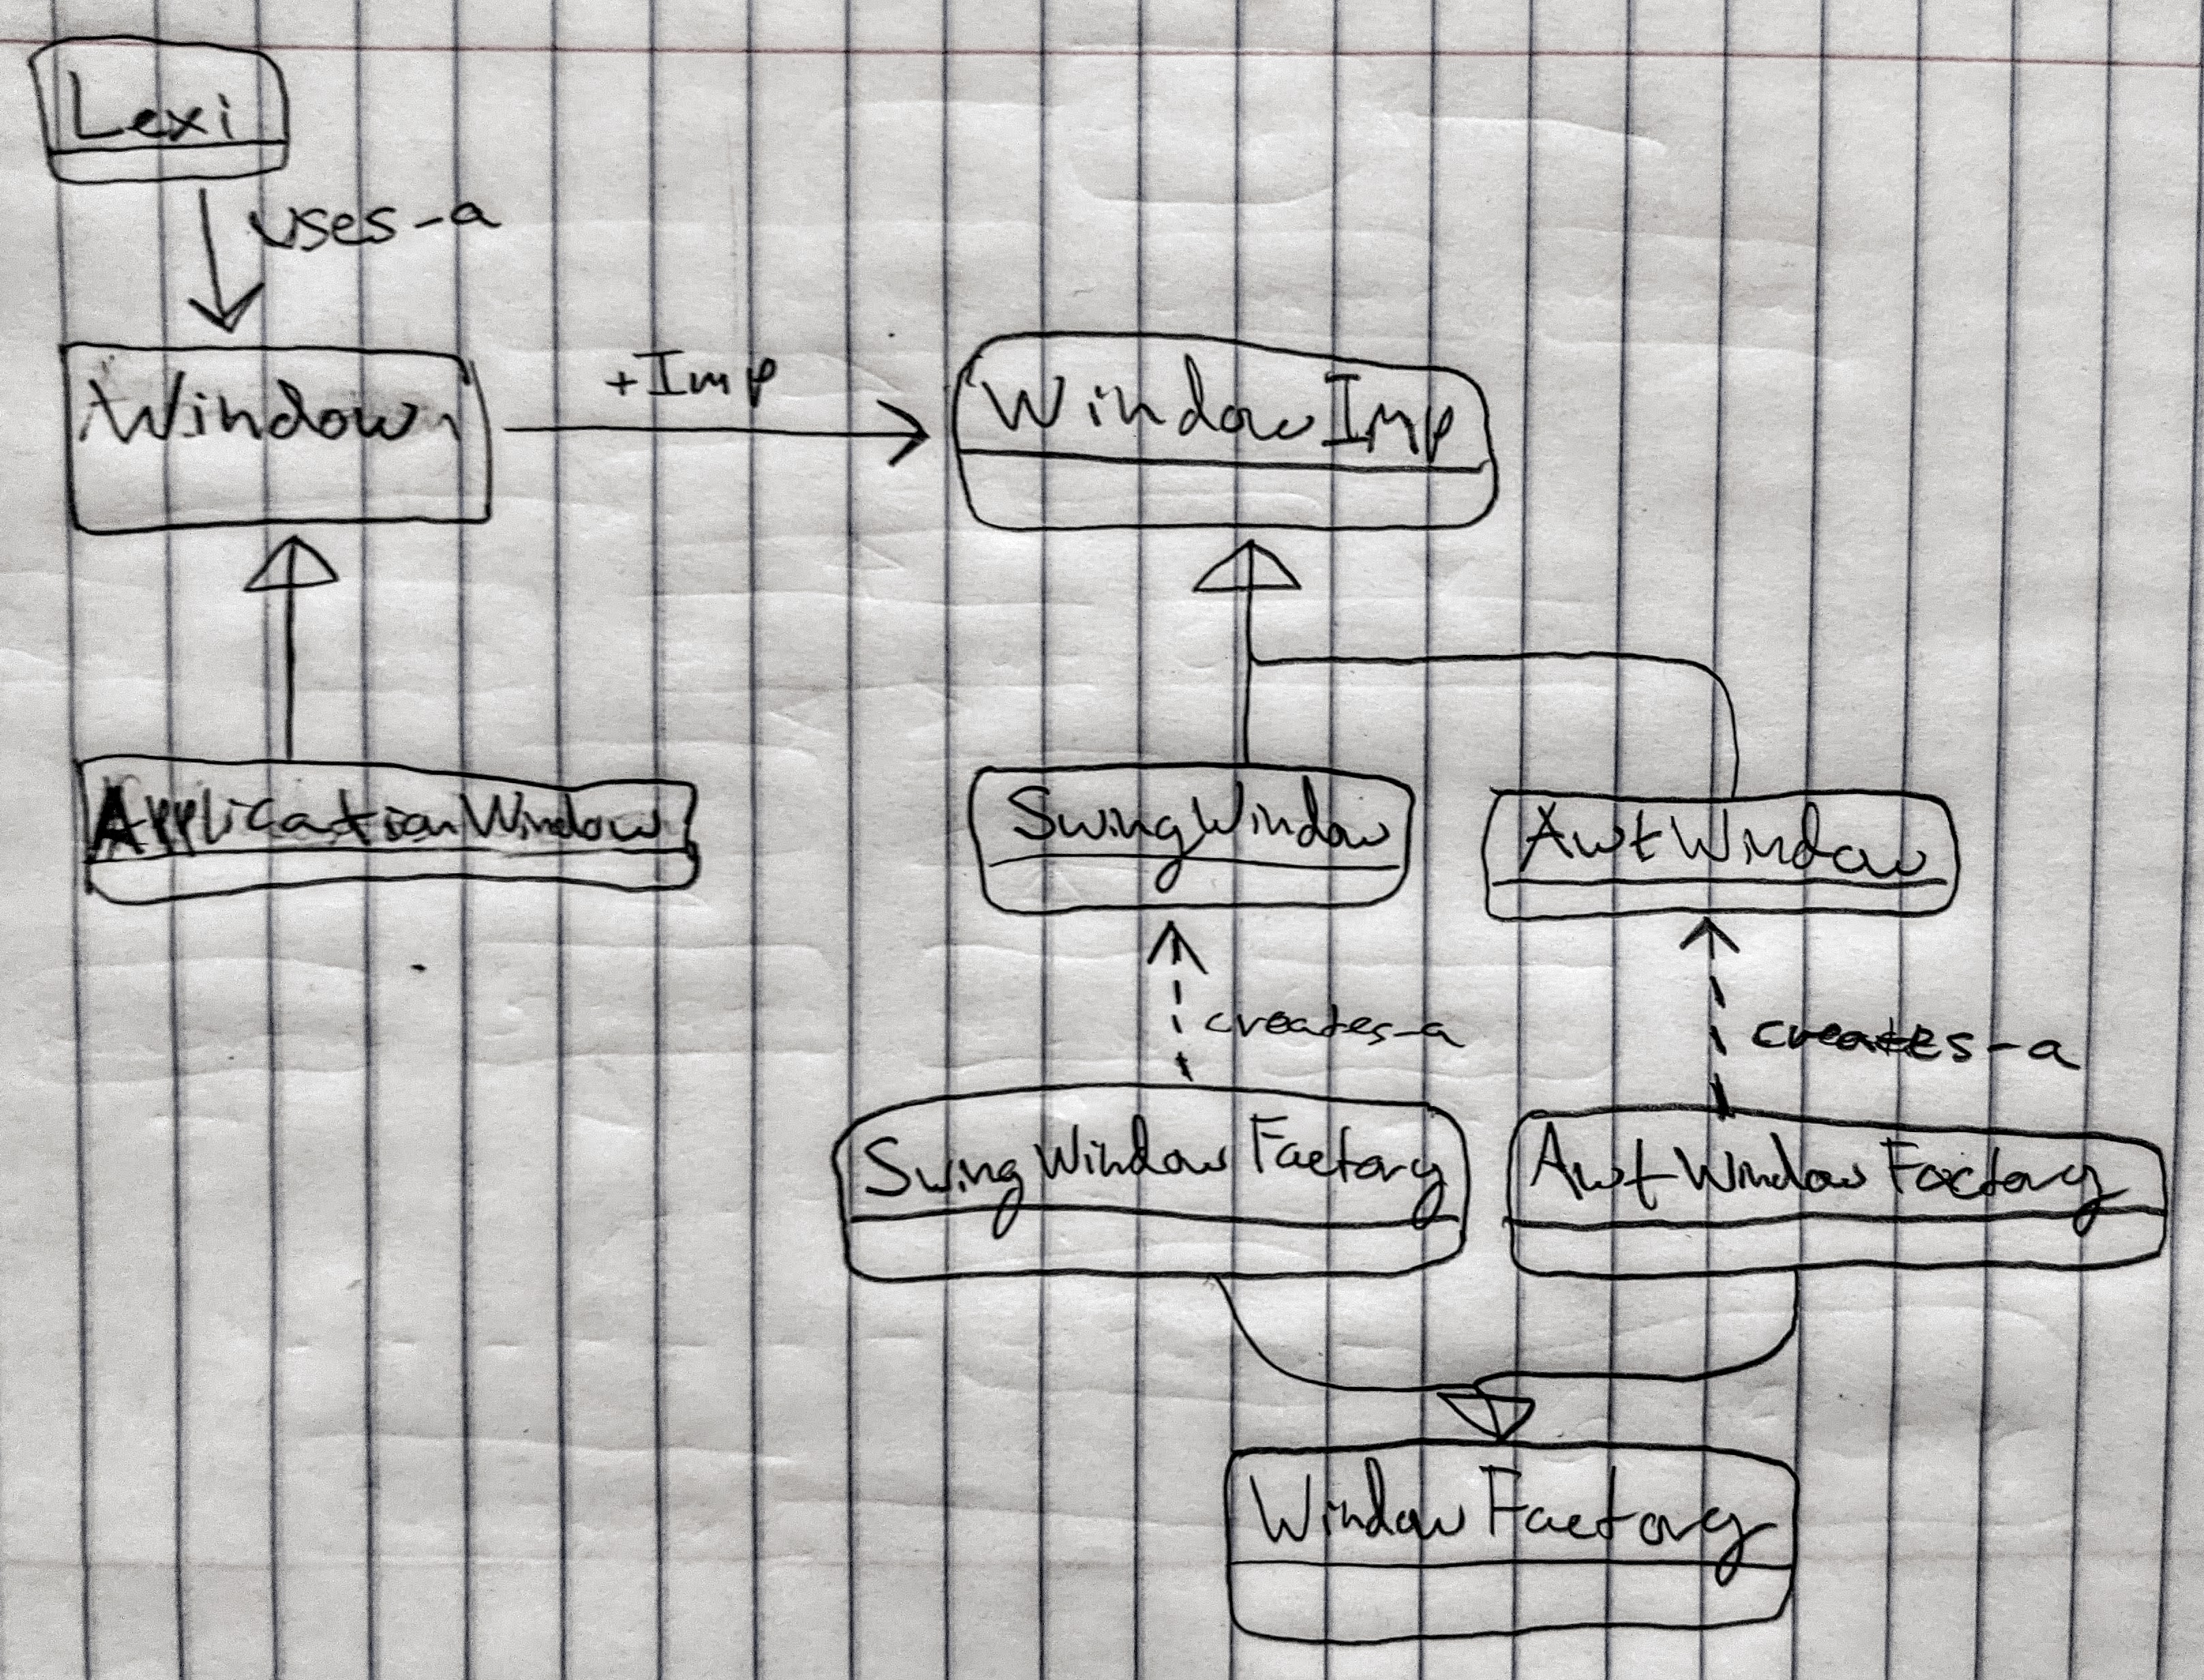 Lexi
uses-a
Window
+Imp
WindowImp
ApplicationWindow
SwingWindow
AwtWindow
creates-a
creates-a
SwingWindowFactory
AwtWindowFactory
WindowFactory